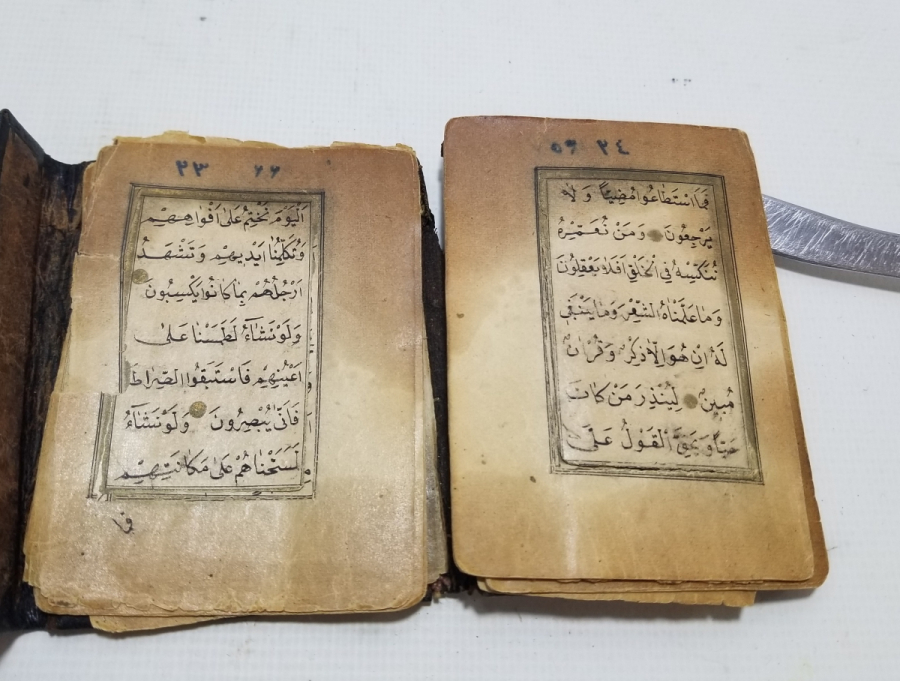 ٢٣ ٦٦
اَلْيَوْمَ نَخْتِمُ عَلٰى اَفْوَاهِهِمْ
وَتُكَلِّمُنَا اَيْدِيهِمْ وَتَشْهَدُ
اَرْجُلُهُمْ بِمَا كَانُوا يَكْسِبُونَ
وَلَوْ نَشَاءُ لَطَمَسْنَا عَلٰى
اَعْيُنِهِمْ فَاسْتَبَقُوا الصِّرَاطَ
فَاَنّٰى يُبْصِرُونَ وَلَوْ نَشَاءُ
لَمَسَخْنَاهُمْ عَلٰى مَكَانَتِهِمْ
٥٩ ٢٤
فَمَا اسْتَطَاعُوا مُضِيًّا وَلَا
يَرْجِعُونَ وَمَنْ نُعَمِّرْهُ
نُنَكِّسْهُ فِي الْخَلْقِ اَفَلَا يَعْقِلُونَ
وَمَا عَلَّمْنَاهُ الشِّعْرَ وَمَا يَنْبَغِي
لَهُ اِنْ هُوَ اِلَّا ذِكْرٌ وَقُرْاٰنٌ
مُبِينٌ لِيُنْذِرَ مَنْ كَانَ
حَيًّا وَيَحِقَّ الْقَوْلُ عَلَى